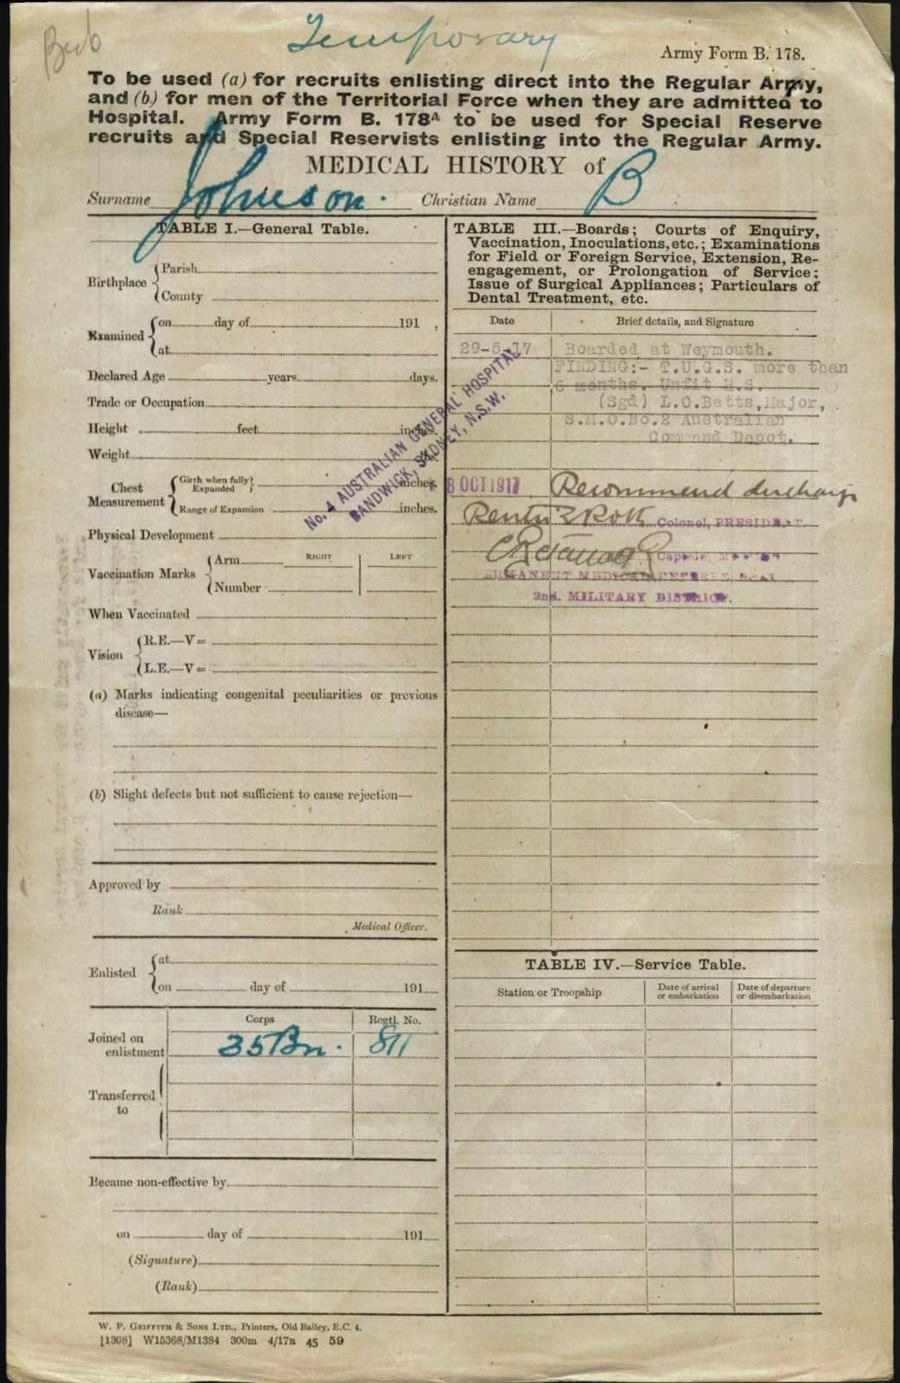 Temporary
Army Form B. 178.
To be used (a) for recruits enlisting direct into the Regular Army,
and (b) for men of the Territorial Force when they are admitted to
Hospital. Army Form B. 178A to be used for Special Reserve
recruits and Special Reservists enlisting into the Regular Army.
MEDICAL HISTORY of
Surname Johnson. Christian Name B
TABLE I.—General Table.
Birthplace
Parish
County
Examined
on day of 191 ,
at
Declared Age years days.
Trade or Occupation
Height feet inches.
Weight
Chest Measurement
Girth when fully Expanded inches.
Range of Expansion inches.
Physical Development
Vaccination Marks
RIGHT LEFT
Arm
Number
When Vaccinated
Vision
R.E.—V=
L.E.—V=
(a) Marks indicating congenital peculiarities or previous
disease—
(b) Slight defects but not sufficient to cause rejection—
Approved by
Rank
Medical Officer.
Enlisted
at
on day of 191
Corps Regtl. No.
Joined on
enlistment
35 Bn. 811
Transferred
to
Became non-effective by
on day of 191
(Signature)
(Rank)
No. 4 AUSTRALIAN GENERAL HOSPITAL
RANDWICK, SYDNEY, N.S.W.
TABLE III.—Boards; Courts of Enquiry,
Vaccination, Inoculations, etc.; Examinations
for Field or Foreign Service, Extension, Re-
engagement, or Prolongation of Service;
Issue of Surgical Appliances; Particulars of
Dental Treatment, etc.
Date Brief details, and Signature
29-5-17 Boarded at Weymouth.
FINDING:- T.U.G.S. more than
6 months. Unfit H.S.
(Sgd) L.O.Betts,Major,
S.M.O.No.2 Australian
Command Depot.
8 OCT 1917 Recommend discharge
Colonel, PRESIDENT
PERMANENT MEDICAL
2nd. MILITARY DISTRICT.
TABLE IV.—Service Table.
Station or Troopship
Date of arrival
or embarkation
Date of departure
or disembarkation
W. P. GRIFFITH & SONS LTD., Printers, Old Bailey, E.C. 4.
[1308] W15368/M1384 300m 4/17n 45 59